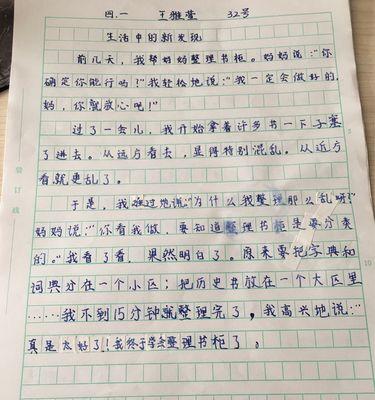 四.一 王雅莹 32号
生活中的新发现
前几天，我帮妈妈整理书柜。妈妈说：“你
确定你能行吗！”我轻松地说：“我一定会做好的，
妈，你就放心吧！”
过了一会儿，我开始拿着许多书一下子塞
了进去。从远方看去，显得特别混乱。从近方
看就更乱了。
于是，我难过地说：“为什么我整理那么乱呀？”
妈妈说：“你看我做，要知道整理书柜是要分类
的。”我看了看，果然明白了。原来要把字典和
词典分在一个小区；把历史书放在一个大区里
……我不到15分钟就整理完了。我高兴地说：“
真是太好了！我终于学会整理书柜了。
装订线
10